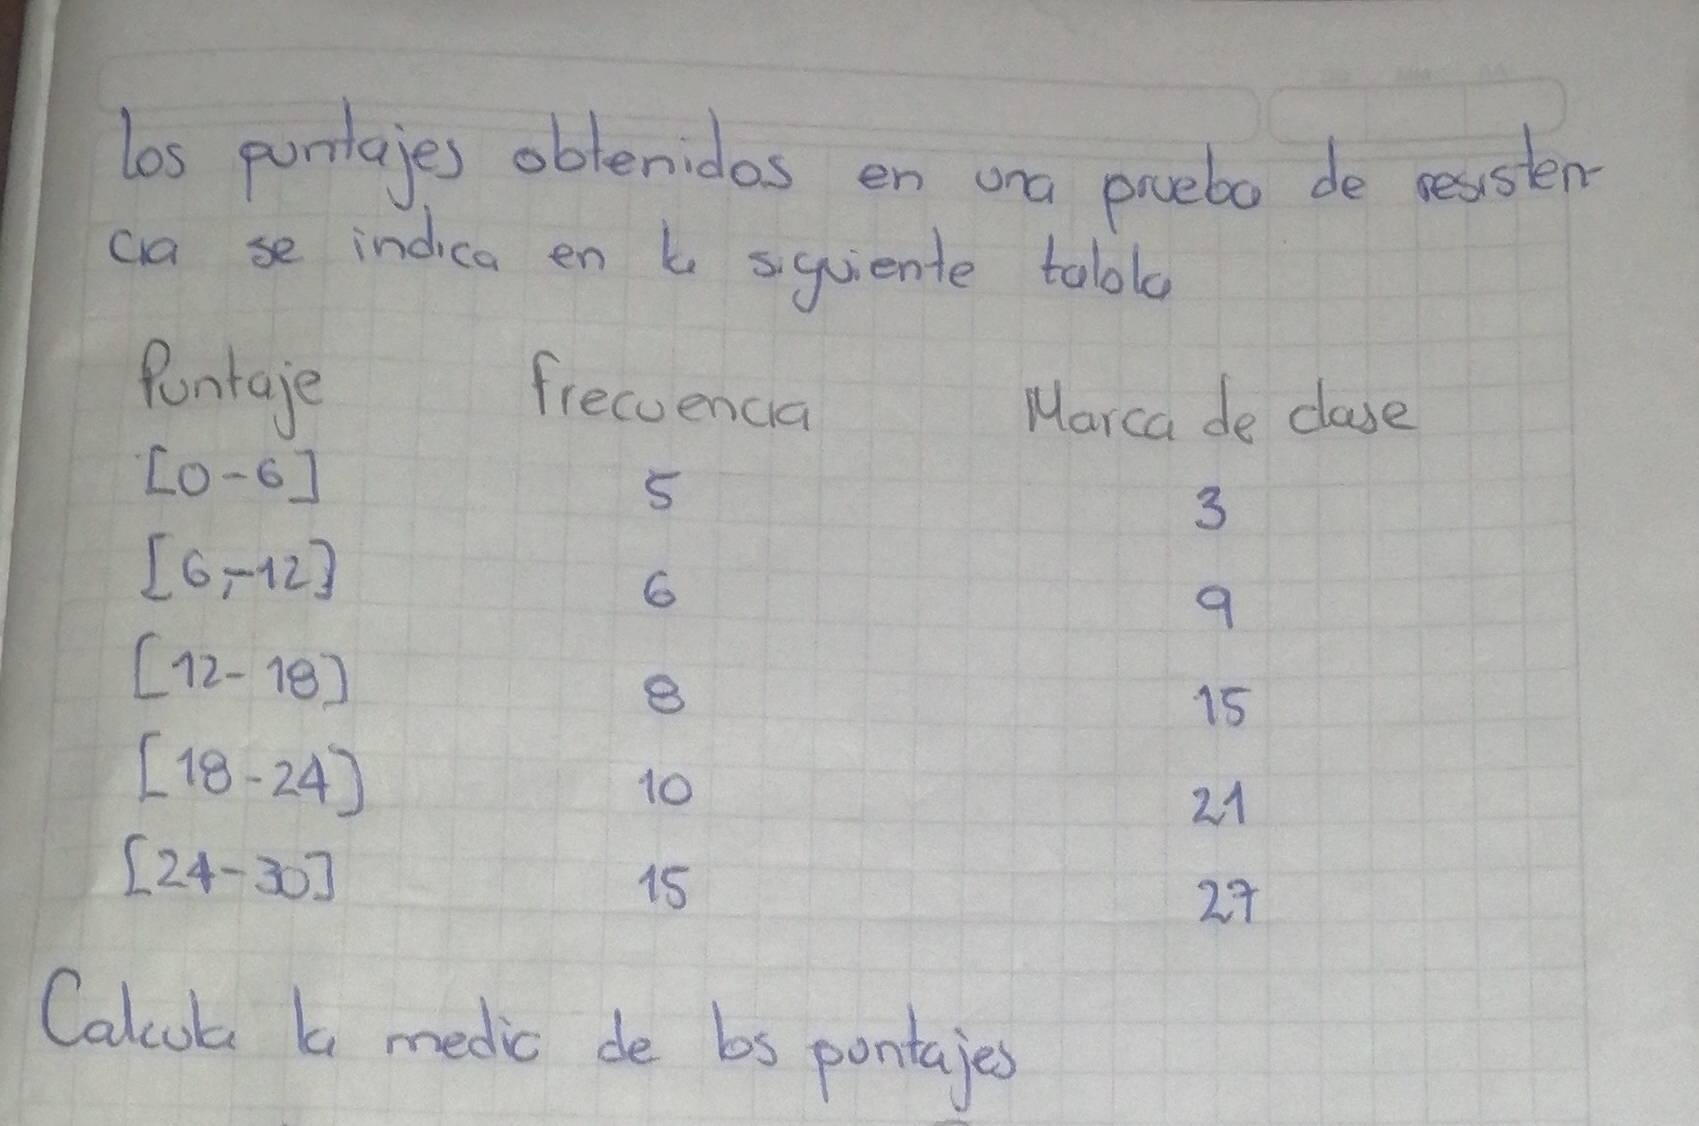 los puntajes obtenidos en una prueba de resisten-
cia se indica en la siguiente tabla
Puntaje frecuencia Marca de clase
[0-6] 5 3
[6,-12] 6 9
[12-18] 8 15
[18-24] 10 21
[24-30] 15 27
Calcula la media de los puntajes